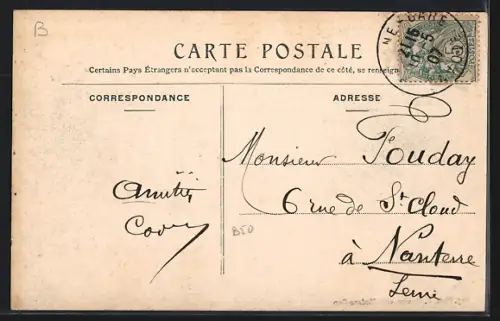 B
CARTE POSTALE
Certains Pays Étrangers n'acceptent pas la Correspondance de ce côté, se renseign
CORRESPONDANCE
ADRESSE
Monsieur Pouday
6 rue de St Cloud
à Nanterre
Seine
Amitiés
B50